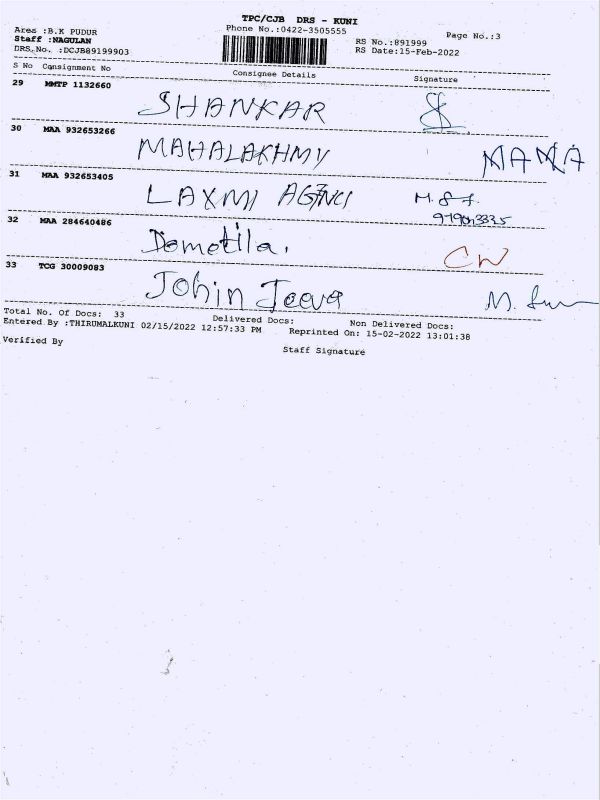 TPC/CJB DRS - KUNI
Area :B.K PUDUR Phone No.:0422-3505555 Page No.:3
Staff :NAGULAN RS No.:891999
DRS.No. :DCJB89199903 RS Date:15-Feb-2022
S No Consignment No Consignee Details Signature
29 MMTP 1132660
SHANKAR
30 MAA 932653266
MAHALAKHMY MAMA
31 MAA 932653405
LAXMI
32 MAA 284640486
Dometila. CW
33 TCG 30009083
Johin Jeeva M.
Total No. Of Docs: 33 Delivered Docs: Non Delivered Docs:
Entered By :THIRUMALKUNI 02/15/2022 12:57:33 PM Reprinted On: 15-02-2022 13:01:38
Verified By Staff Signature